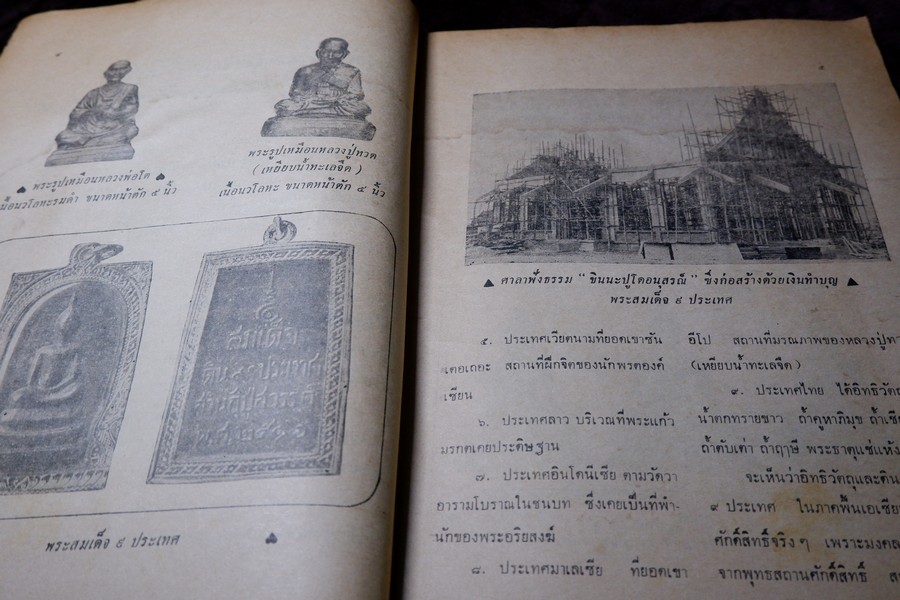 พระรูปเหมือนหลวงพ่อโต
เนื้อนวโลหะรมดำ ขนาดหน้าตัก ๕ นิ้ว
พระรูปเหมือนหลวงปู่ทวด
(เหยียบน้ำทะเลจืด)
เนื้อนวโลหะ ขนาดหน้าตัก ๕ นิ้ว
สมเด็จ
ดิน ๙ ประเทศ
พระสมเด็จ ๙ ประเทศ
ศาลาฟังธรรม "ขินนะปูโตอนุสรณ์" ซึ่งก่อสร้างด้วยเงินทำบุญ
พระสมเด็จ ๙ ประเทศ
๕. ประเทศเวียตนามที่ยอดเขาซัน
เตอเถอะ สถานที่ฝึกจิตของนักพรตองค์
เซียน
๖. ประเทศลาว บริเวณที่พระแก้ว
มรกตเคยประดิษฐาน
๗. ประเทศอินโดนีเซีย ตามวัดวา
อารามโบราณในชนบท ซึ่งเคยเป็นที่พำ-
นักของพระอริยสงฆ์
๘. ประเทศมาเลเซีย ที่ยอดเขา
อีโป สถานที่มรณภาพของหลวงปู่ทว
(เหยียบน้ำทะเลจืด)
๙. ประเทศไทย ได้อิทธิวัตถุ
น้ำตกทรายขาว ถ้ำคูหาภิมุข ถ้ำเซีย
ถ้ำตับเต่า ถ้ำฤาษี พระธาตุแช่แห้ง
จะเห็นว่าอิทธิวัตถุและดิน
๙ ประเทศ ในภาคพื้นเอเซีย
ศักดิ์สิทธิ์จริงๆ เพราะมงคล
จากพุทธสถานศักดิ์สิทธิ์